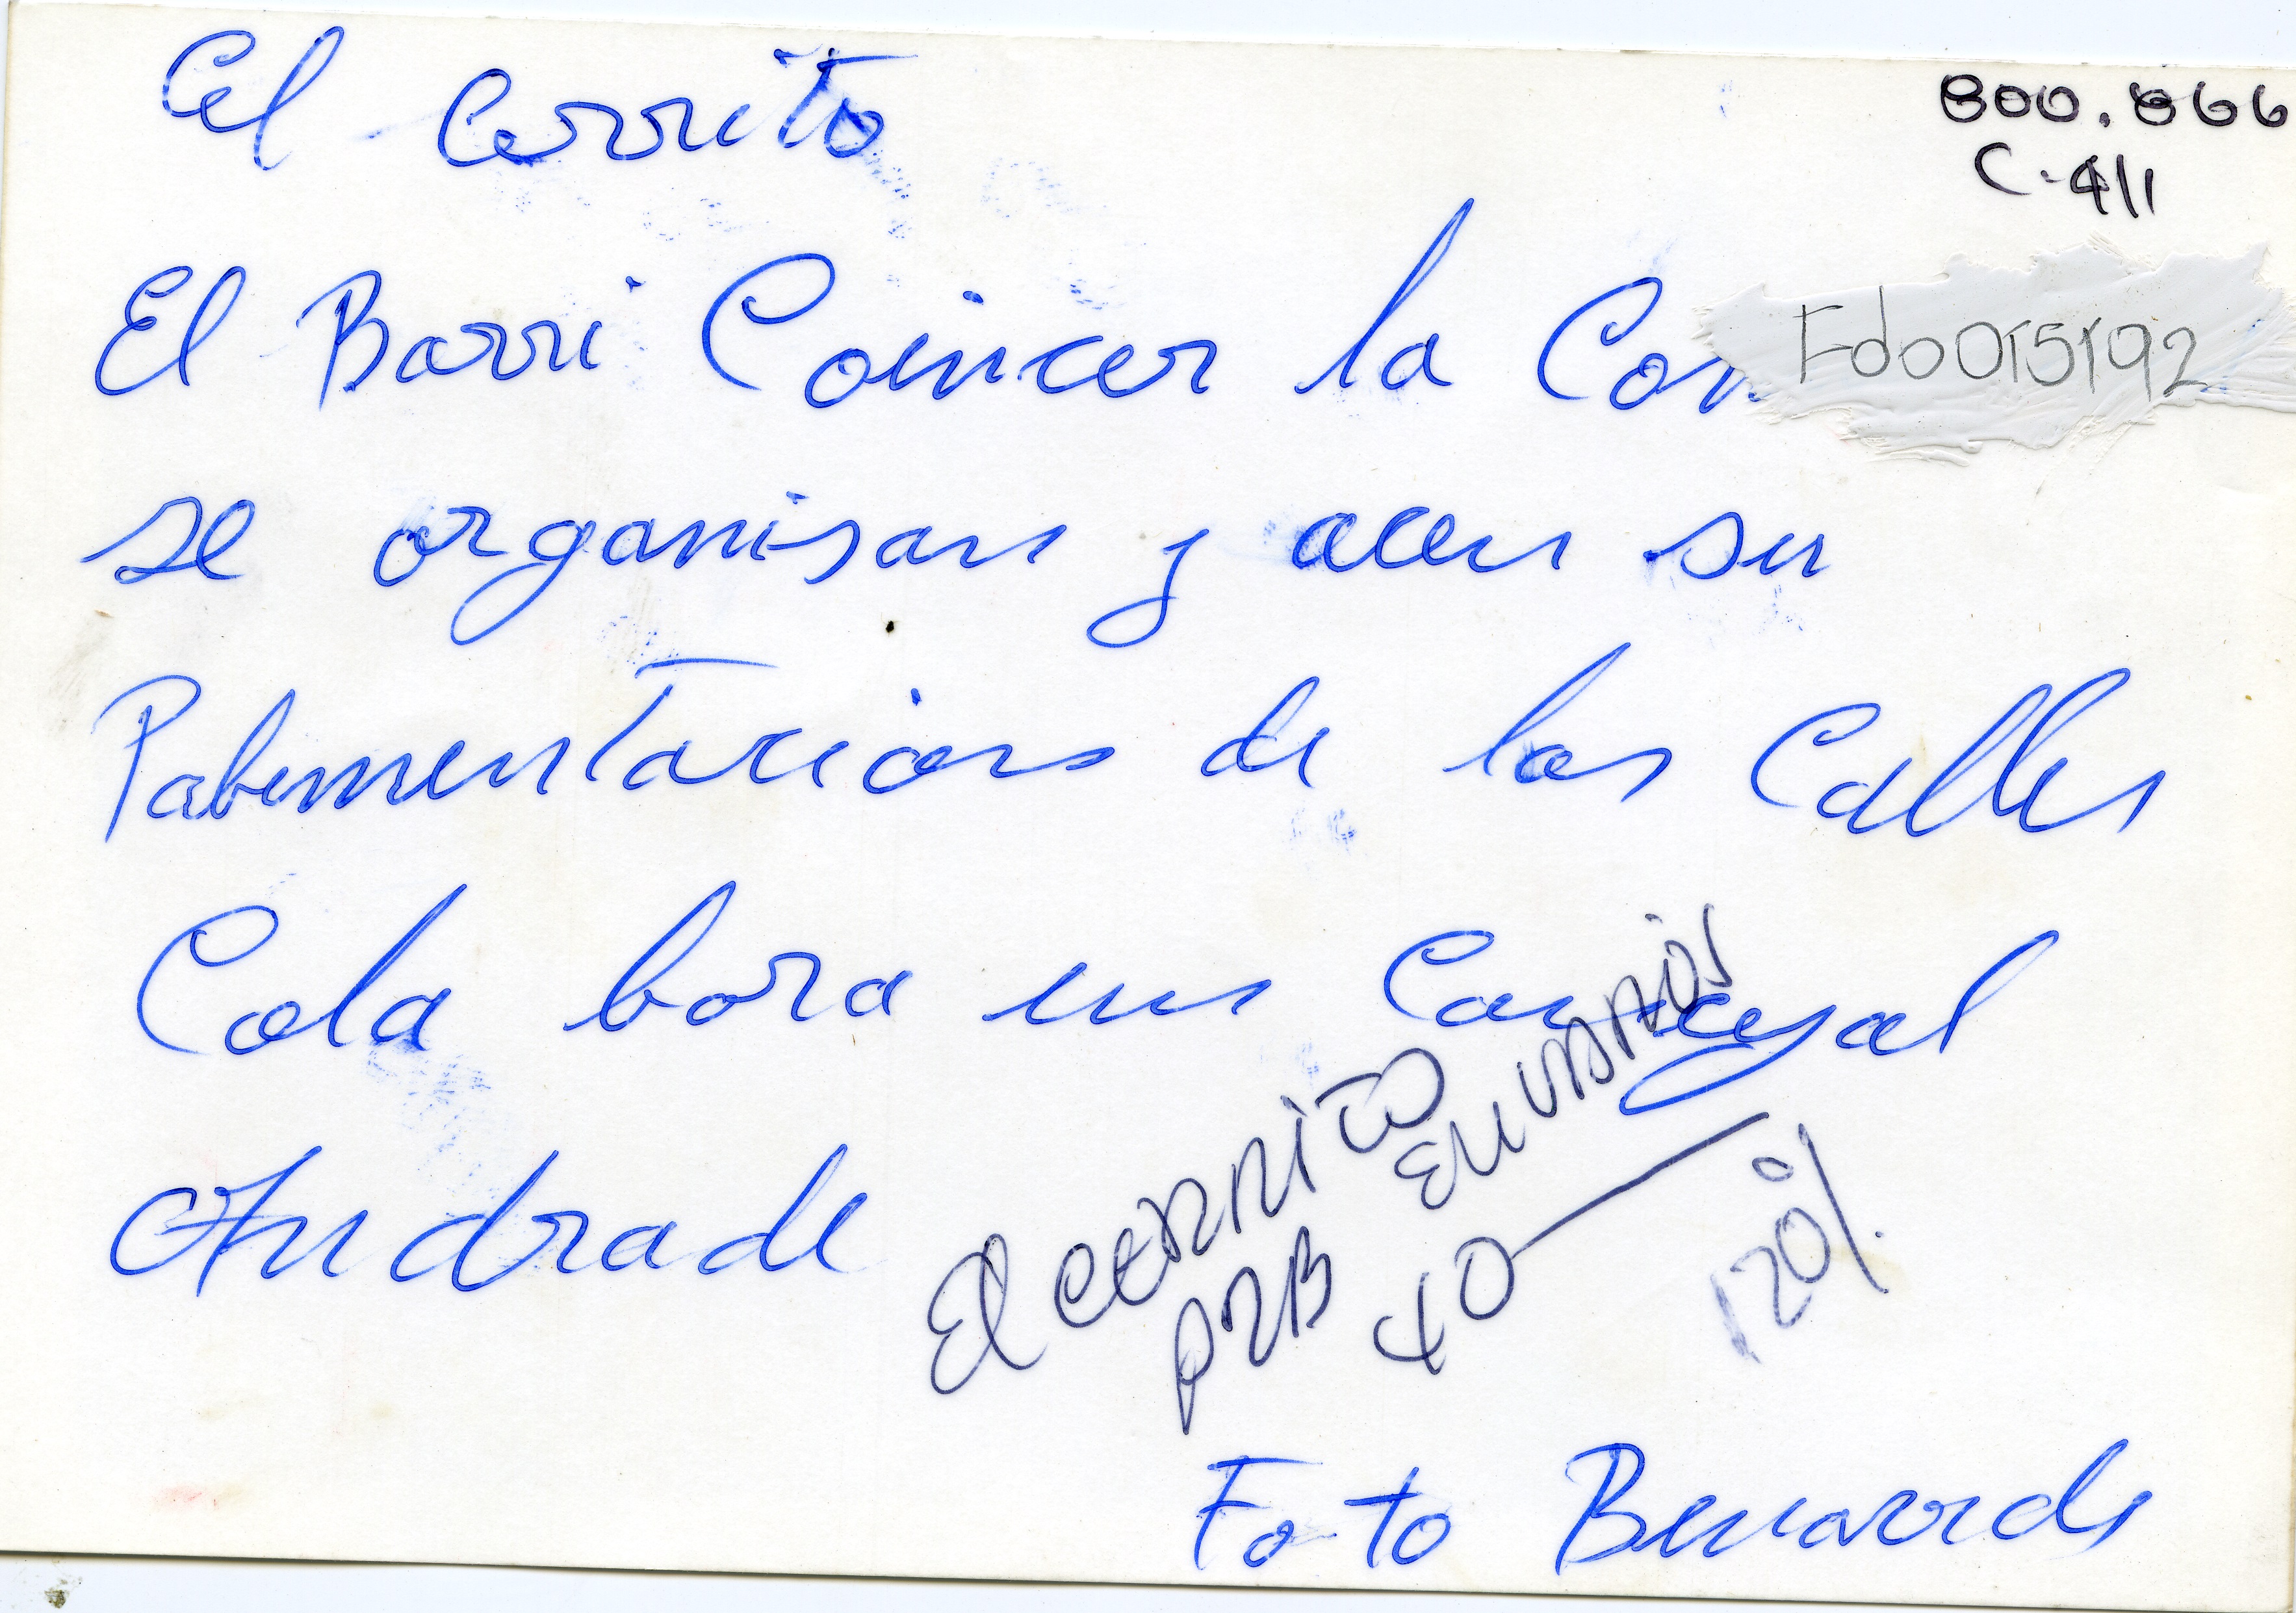 El Cerrito
800.866
C-4/1
El Barri Coincer la Com
Fdo015192
se organisan y acen su
Pabimentacions de las Calles
Cola bora un Consejal
Andrade
El cerrito
P2B
En varios
40
120%
Foto Benarde